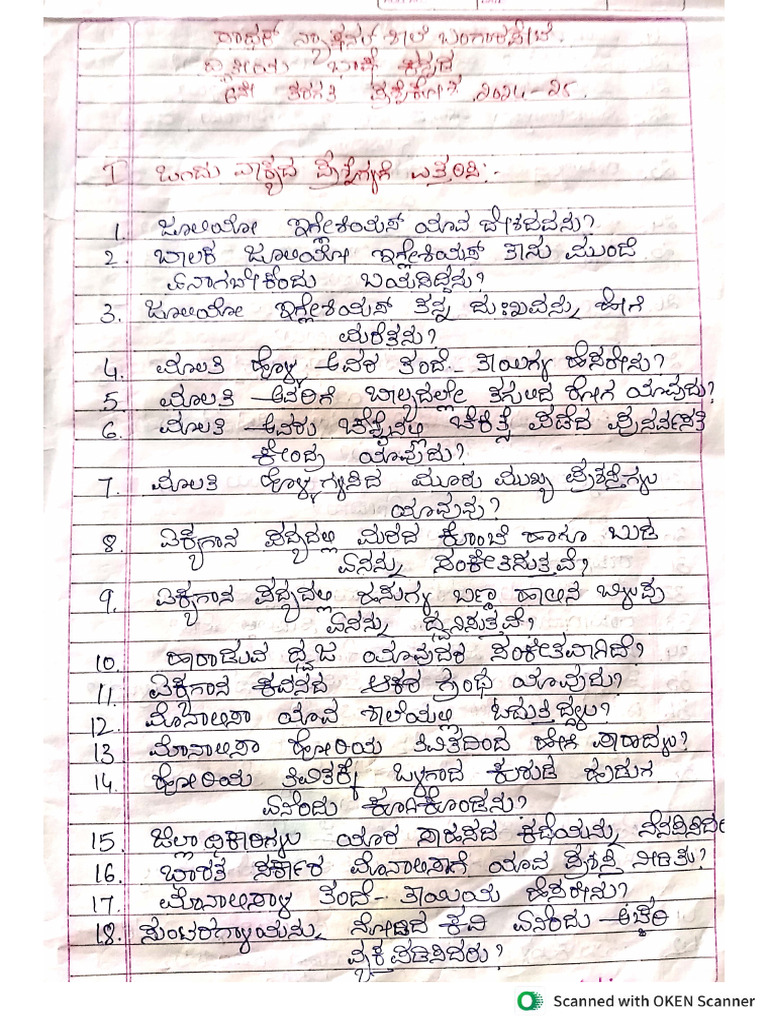 ಸಾಧನ್ ನ್ಯಾಷನಲ್ ಶಾಲೆ ಬಂಗಾರಪೇಟೆ.
ದ್ವಿತೀಯ ಭಾಷೆ ಕನ್ನಡ
6ನೇ ತರಗತಿ ಪ್ರಶ್ನೆಕೋಠಿ ೨೦೨೪-೨೫.
I ಒಂದು ವಾಕ್ಯದ ಪ್ರಶ್ನೆಗಳಿಗೆ ಉತ್ತರಿಸಿ:-
1. ಜೂಲಿಯೋ ಇಗ್ಲೇಶಿಯಸ್ ಯಾವ ದೇಶದವನು?
2. ಬಾಲಕ ಜೂಲಿಯೋ ಇಗ್ಲೇಶಿಯಸ್ ತಾನು ಮುಂದೆ
ಏನಾಗಬೇಕೆಂದು ಬಯಸಿದ್ದನು?
3. ಜೂಲಿಯೋ ಇಗ್ಲೇಶಿಯಸ್ ತನ್ನ ದುಃಖವನ್ನು ಹೇಗೆ
ಮರೆತನು?
4. ಮಾಲತಿ ಹೊಳ್ಳ ಅವರ ತಂದೆ-ತಾಯಿಗಳ ಹೆಸರೇನು?
5. ಮಾಲತಿ ಅವರಿಗೆ ಬಾಲ್ಯದಲ್ಲೇ ತಗುಲಿದ ರೋಗ ಯಾವುದು?
6. ಮಾಲತಿ ಅವರು ಚೆನ್ನೈನಲ್ಲಿ ಚಿಕಿತ್ಸೆ ಪಡೆದ ಪುನರ್ವಸತಿ
ಕೇಂದ್ರ ಯಾವುದು?
7. ಮಾಲತಿ ಹೊಳ್ಳ ಗಳಿಸಿದ ಮೂರು ಮುಖ್ಯ ಪ್ರಶಸ್ತಿಗಳು
ಯಾವುವು?
8. ಐಕ್ಯಗಾನ ಪದ್ಯದಲ್ಲಿ ಮರದ ಕೊಂಬೆ ಹಾಗೂ ಬುಡ
ಏನನ್ನು ಸಂಕೇತಿಸುತ್ತವೆ?
9. ಐಕ್ಯಗಾನ ಪದ್ಯದಲ್ಲಿ ಹಸುಗಳ ಬಣ್ಣ ಹಾಲಿನ ಬಿಳುಪು
ಏನನ್ನು ಧ್ವನಿಸುತ್ತವೆ?
10. ಹಾರಾಡುವ ಧ್ವಜ ಯಾವುದರ ಸಂಕೇತವಾಗಿದೆ?
11. ಐಕ್ಯಗಾನ ಕವನದ ಆಕರ ಗ್ರಂಥ ಯಾವುದು?
12. ಮೊನಾಲಿಸಾ ಯಾವ ಶಾಲೆಯಲ್ಲಿ ಓದುತ್ತಿದ್ದಳು?
13 ಮೊನಾಲಿಸಾ ಹೋರಿಯ ತಿವಿತದಿಂದ ಹೇಗೆ ಪಾರಾದಳು?
14. ಹೋರಿಯ ತಿವಿತಕ್ಕೆ ಒಳಗಾದ ಕುರುಡ ಹುಡುಗ
ಏನೆಂದು ಕೂಗಿಕೊಂಡನು?
15. ಜಿಲ್ಲಾಧಿಕಾರಿಗಳು ಯಾರ ಸಾಹಸದ ಕಥೆಯನ್ನು
16. ಭಾರತ ಸರ್ಕಾರ ಮೊನಾಲಿಸಾಗೆ ಯಾವ ಪ್ರಶಸ್ತಿ ನೀಡಿತು?
17. ಮೊನಾಲಿಸಾಳ ತಂದೆ-ತಾಯಿಯ ಹೆಸರೇನು?
18. ಸುಂಟರಗಾಳಿಯನ್ನು ನೋಡಿದ ಕವಿ ಏನೆಂದು ಅಚ್ಚರಿ
ವ್ಯಕ್ತಪಡಿಸಿದರು?
Scanned with OKEN Scanner